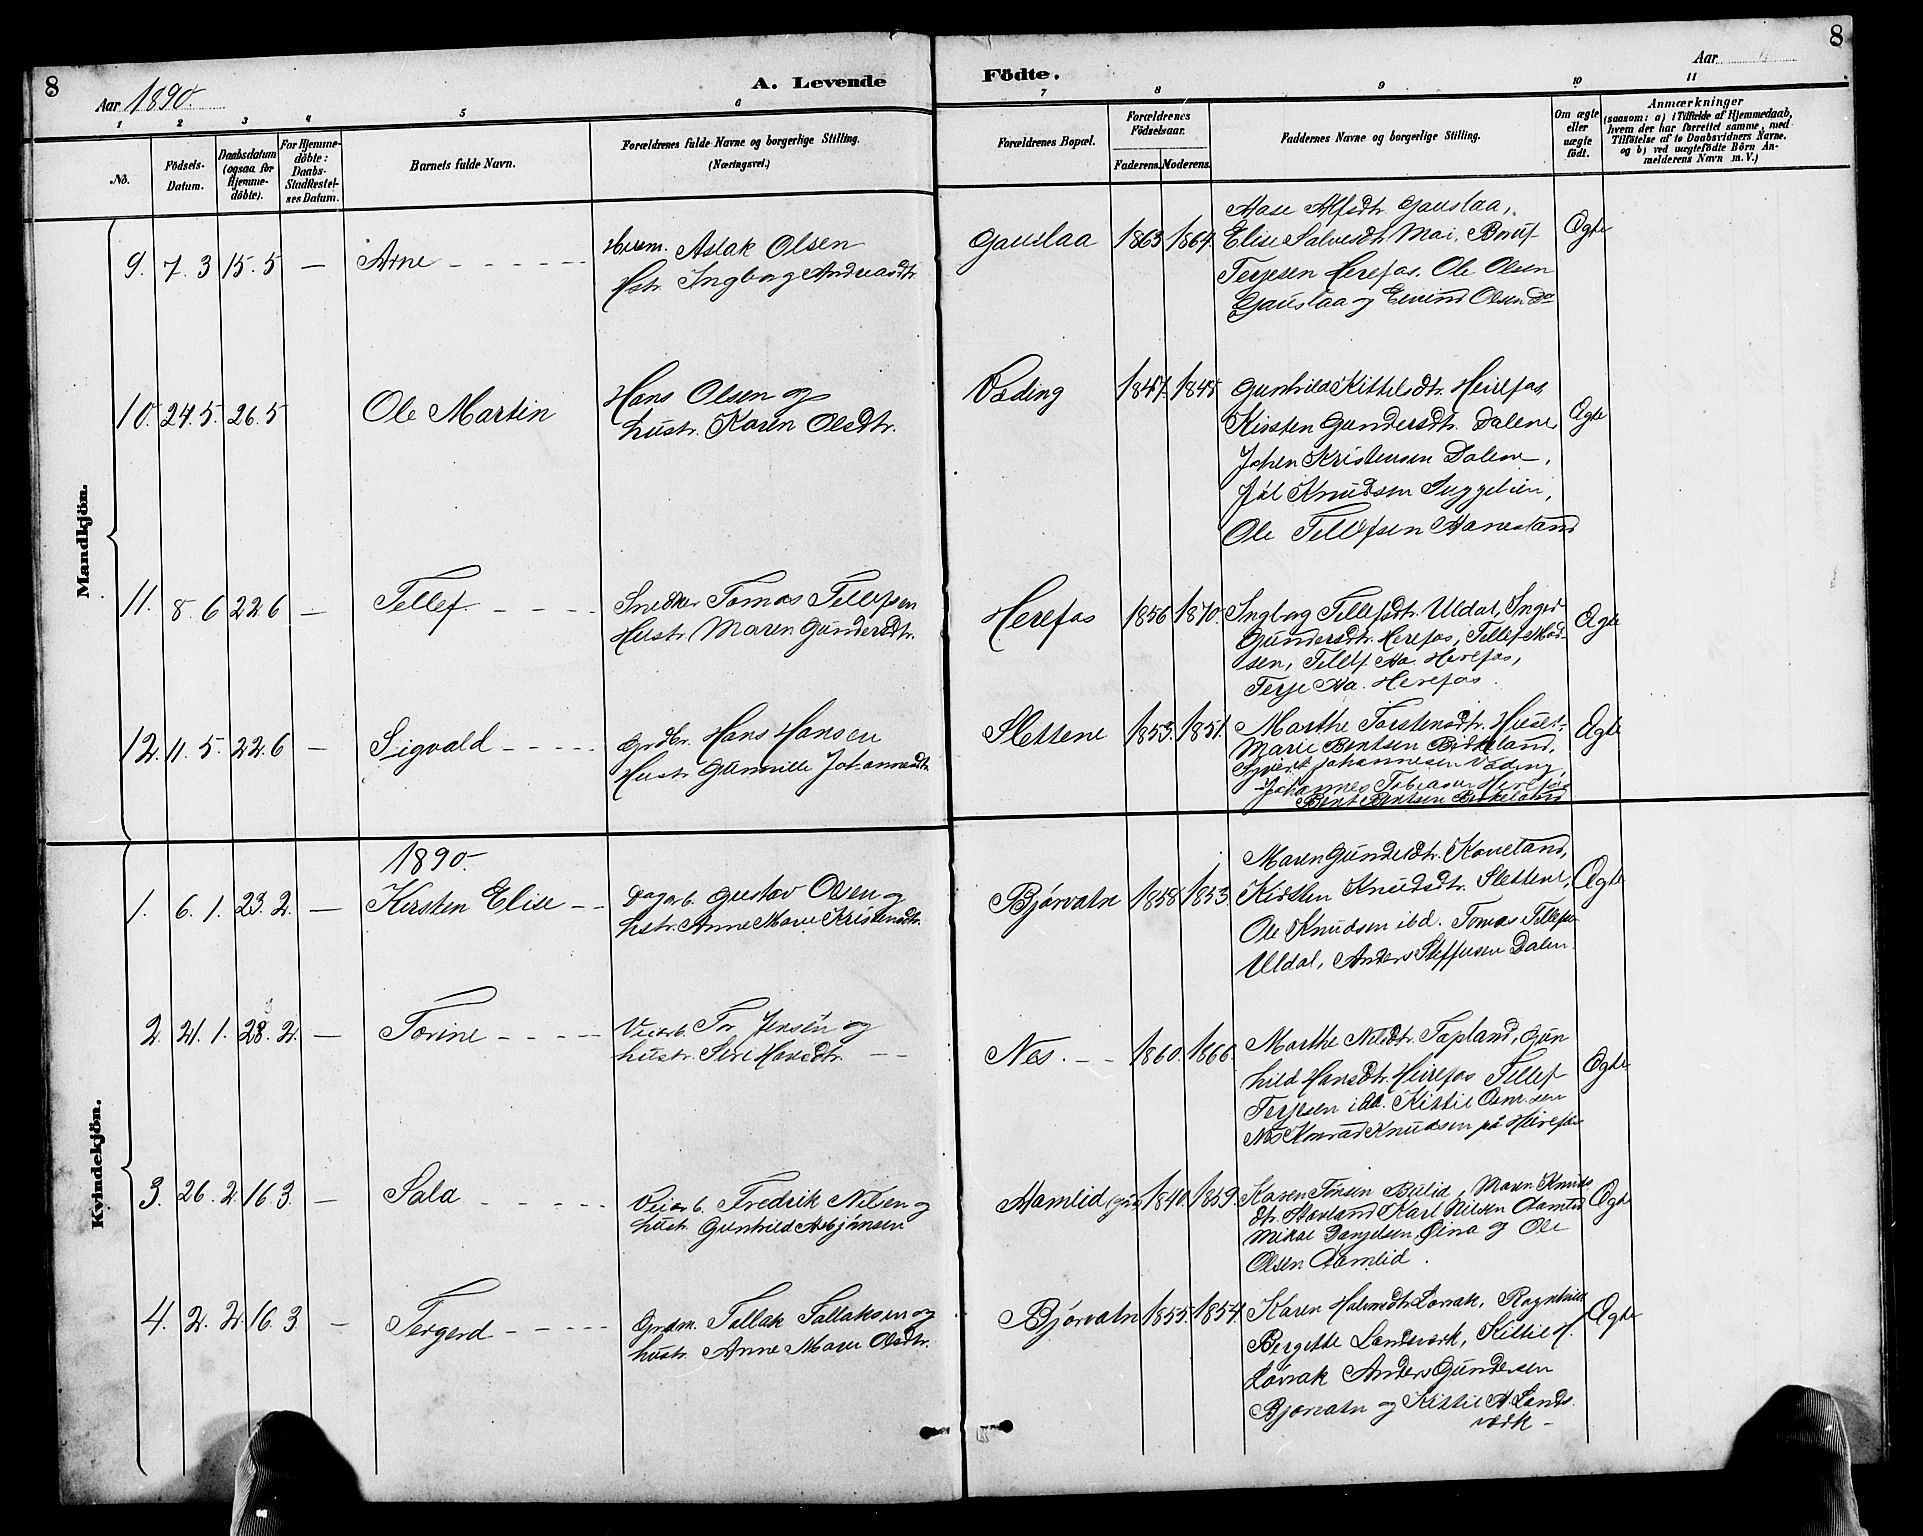 8
Aar 1890.
A. Levende
Födte.
Aar
8
1 2 3 4 5 6 7 8 9 10 11
No.
Födsels-
Datum.
Daabsdatum
(ogsaa for
Hjemme-
döbte).
For Hjemme-
döbte:
Daabs-
Stadfestel-
ses Datum.
Barnets fulde Navn.
Forældrenes fulde Navne og borgerlige Stilling.
(Næringsvei.)
Forældrenes Bopæl.
Forældrenes
Födselsaar.
Faderens. Moderens.
Faddernes Navne og borgerlige Stilling.
Om ægte
eller
uægte
födt.
Anmærkninger
(saasom: a) i Tilfælde af Hjemmedaab,
hvem der har forrettet samme, med
Tilföielse af to Daabsvidners Navne.
og b) ved uægtefödte Börn An-
melderens Navn m. V.)
Mandkjön.
9. 7. 3 15. 5 — Arne
Husm. Aslak Olsen
Hstr. Ingborg Andreasdtr.
Gauslaa 1863 1864.
Aase Alfsdtr. Gauslaa,
Elise Salvesdtr. Mai,
Terjesen Herefos. Ole Olsen
Gauslaa og Eivind Olsen Do
Ægte
10. 24. 5. 26. 5 Ole Martin
Hans Olsen og
hustr. Karen Olsdtr.
Væding 1847. 1845
Gunhild Kittelsdtr. Heirefos,
Kirsten Gundersdtr. Dalene,
Kristensen Dalene,
Knudsen
Ole Tellefsen Aanestand
Ægte
11. 8. 6 22. 6 — Tellef
Snedker Tomas Tellefsen
Hustr. Maren Gundersdtr.
Herefos 1856 1870.
Ingborg Tellefsdtr. Uldal, Inger
Gundersdtr. Herefos, Tellef Mad-
sen, Tellef Aa. Herefos,
Terje Aa. Herefos.
Ægte
12. 11. 5. 22. 6 — Sigvald
Grdbr. Hans Hansen
Hustr. Gunnille Johannesdtr.
Slettene 1853. 1851.
Marthe Torstensdtr.
Marie Bentsen Birkeland,
Syvert Johannesen Væding,
Johannes Tobiasen Herefos
Bent Bentsen Birkeland
Ægte
Kvindekjön.
1890.
1. 6. 1. 23. 2. — Kirsten Elise
Dagarb. Gustav Olsen og
hstr. Anne Marie Kristensdtr.
Bjørvatn 1858. 1853.
Maren Gundersdtr.
Kirsten Knudsdtr. Slettene,
Ole Knudsen ibd. Tomas Tellefsen
Uldal, Anders Steffensen Dalen.
Ægte
2. 21. 1. 28. 2. — Torine
Veiarb. Tor Jensen og
hustr. Siri Hansdtr.
Nes. 1860. 1866.
Marthe Nilsdtr. Topland, Gun
hild Hansdtr. Heirefos Tellef
Terjesen ibd. Kittil
Nes Konrad Knudsen på Heirefos
Ægte
3. 26. 2. 16. 3. — Sala
Veiarb. Fredrik Nilsen og
hustr. Gunhild Asbjönsen
Aamlid 1840. 1859.
Karen Maren Knuds
dtr. Karl Nilsen Aamlid
Mikal Danjelsen og Ole
Olsen Aamlid.
Ægte
4. 2. 2. 16. 3 — Tergerd
Grdm. Tallak Tallaksen og
hustr. Anne Marie Olsdtr.
Bjørvatn 1855. 1854.
Karen Løvrak, Ragnhild
Bergitte Landsværk, Kittil H.
Løvrak Anders Gundersen
Bjørvatn og Kittil A. Lands
værk —
Ægte